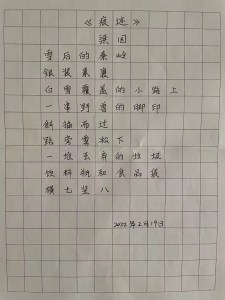 《痕迹》
梁园
雪后的秦岭
银装素裹
白雪覆盖的小路上
一串野兽的脚印
斜插而过
路旁雪松下
一堆丢弃的垃圾
饮料瓶和食品袋
横七竖八
2022年2月19日